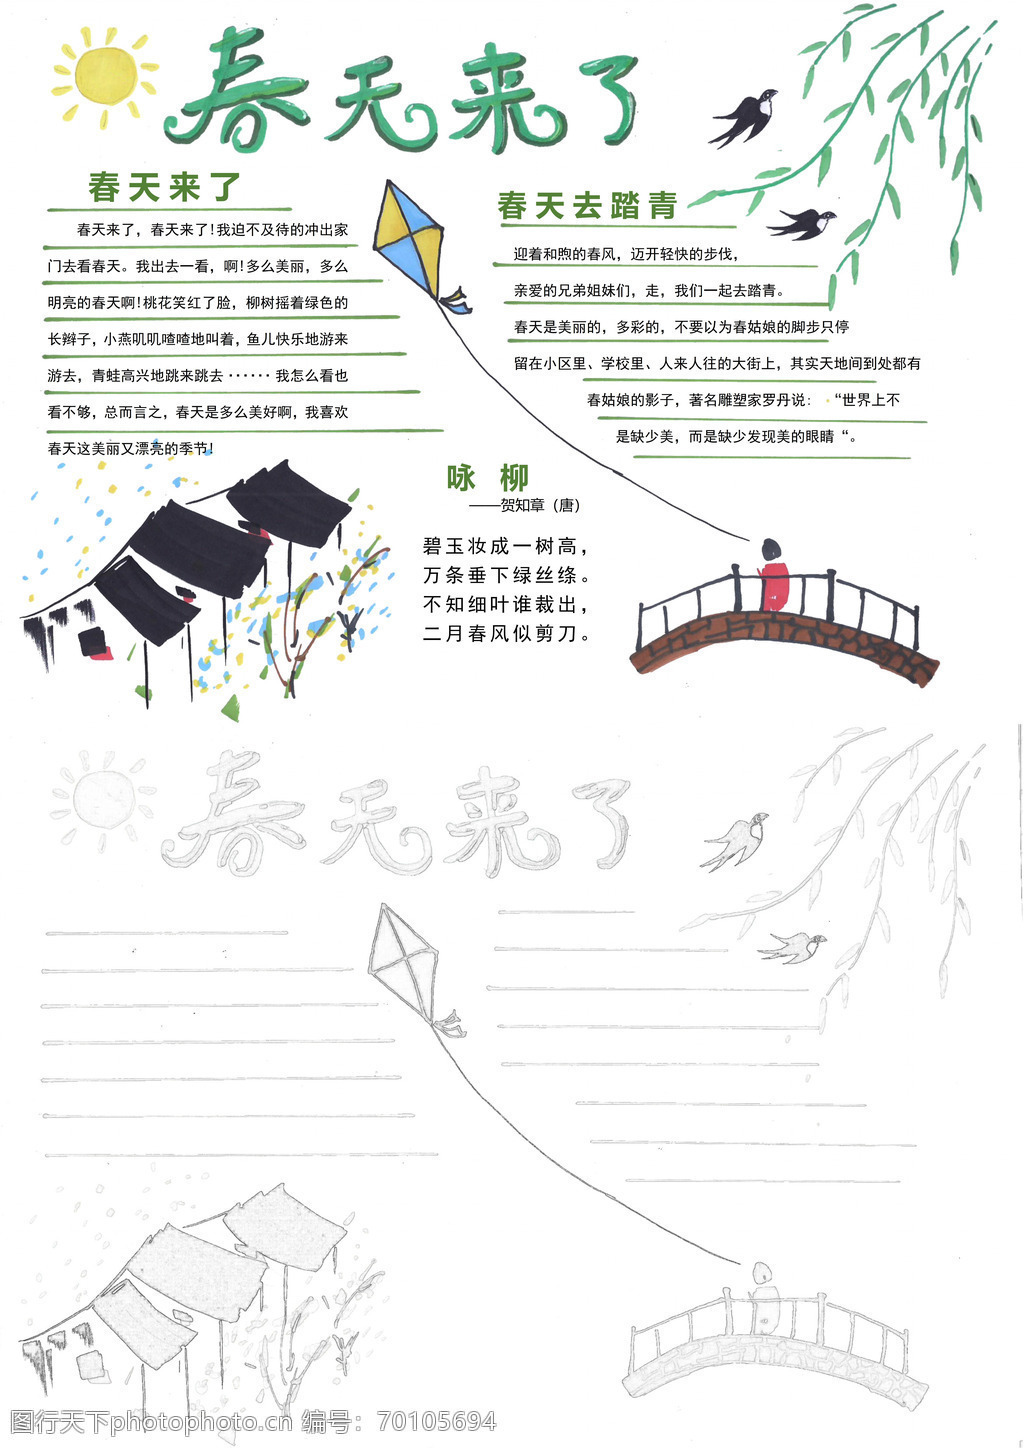 春天来了
春天来了
春天来了，春天来了！我迫不及待的冲出家
门去看春天。我出去一看，啊！多么美丽，多么
明亮的春天啊！桃花笑红了脸，柳树摇着绿色的
长辫子，小燕叽叽喳喳地叫着，鱼儿快乐地游来
游去，青蛙高兴地跳来跳去······我怎么看也
看不够，总而言之，春天是多么美好啊，我喜欢
春天这美丽又漂亮的季节！
春天去踏青
迎着和煦的春风，迈开轻快的步伐，
亲爱的兄弟姐妹们，走，我们一起去踏青。
春天是美丽的，多彩的，不要以为春姑娘的脚步只停
留在小区里、学校里、人来人往的大街上，其实天地间到处都有
春姑娘的影子，著名雕塑家罗丹说：“世界上不
是缺少美，而是缺少发现美的眼睛“。
咏 柳
——贺知章（唐）
碧玉妆成一树高，
万条垂下绿丝绦。
不知细叶谁裁出，
二月春风似剪刀。
春天来了
图行天下photophoto.cn 编号：70105694